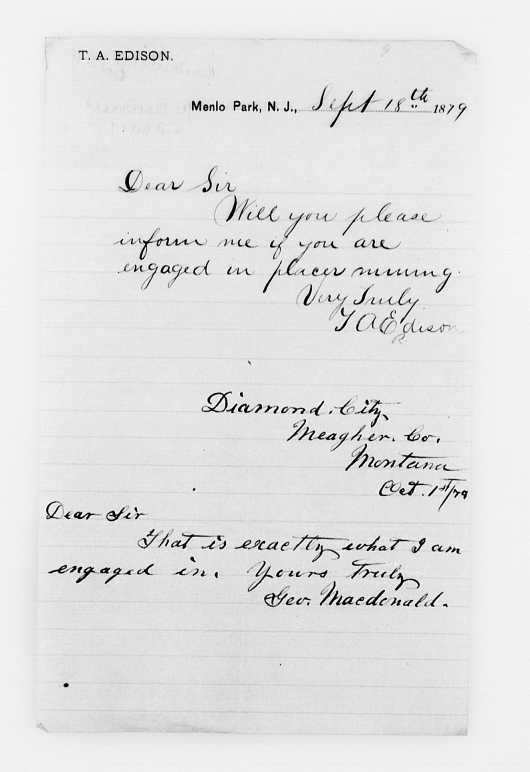 T. A. EDISON.
Menlo Park, N. J., Sept 18th 1879
Dear Sir
Will you please
inform me if you are
engaged in placer mining.
Very Truly
T A Edison
Diamond. City,
Meagher. Co.
Montana
Oct. 1st/79
Dear Sir
That is exactly what I am
engaged in. Yours Truly
Geo. Macdonald.